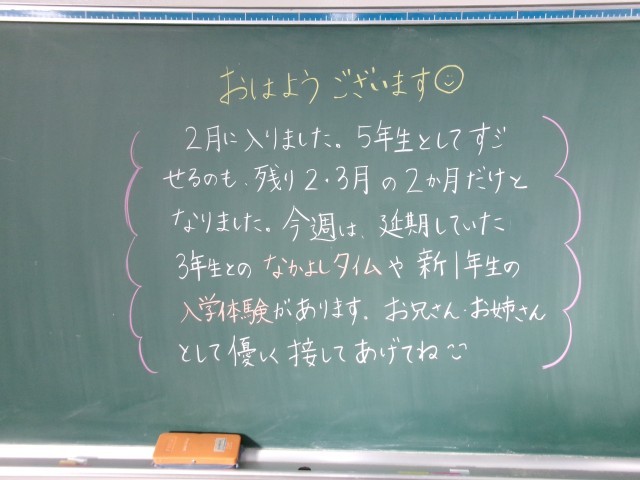 おはようございます
2月に入りました。5年生としてすご
せるのも、残り2・3月の2か月だけと
なりました。今週は、延期していた
3年生とのなかよしタイムや新1年生の
入学体験があります。お兄さん・お姉さん
として優しく接してあげてね